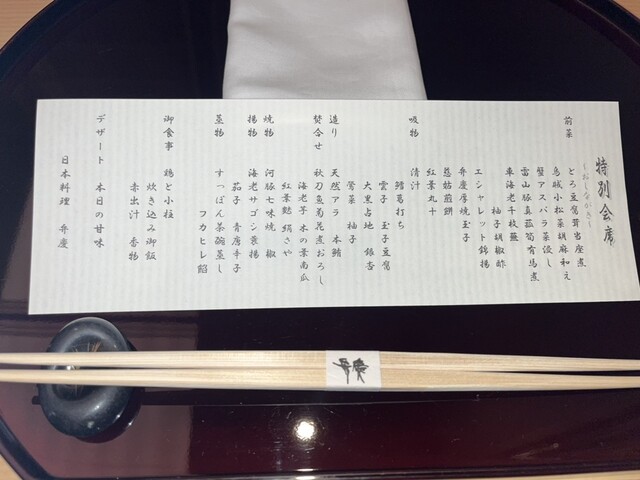 特別会席
前菜
とろ豆腐茸当座煮
烏賊小松菜胡麻和え
蟹アスパラ菜浸し
雲山豚真菰筍有馬煮
車海老千枚蕪
柚子胡椒酢
エシャレット錦揚
弁慶厚焼玉子
慈姑煎餅
紅葉丸十
吸物
清汁
鱈葛打ち
雲子 玉子豆腐
大黒占地 銀杏
鶯菜 柚子
造り
天然アラ 本鮪
焚合せ
秋刀魚菊花煮おろし
海老芋 木の葉南瓜
紅葉麩 絹さや
焼物
河豚七味焼 椒
揚物
海老サゴシ蓑揚
茄子 青唐辛子
蒸物
すっぽん茶碗蒸し
フカヒレ餡
御食事
鶏と小柱
炊き込み御飯
赤出汁 香物
デザート
本日の甘味
日本料理 弁慶
弁慶